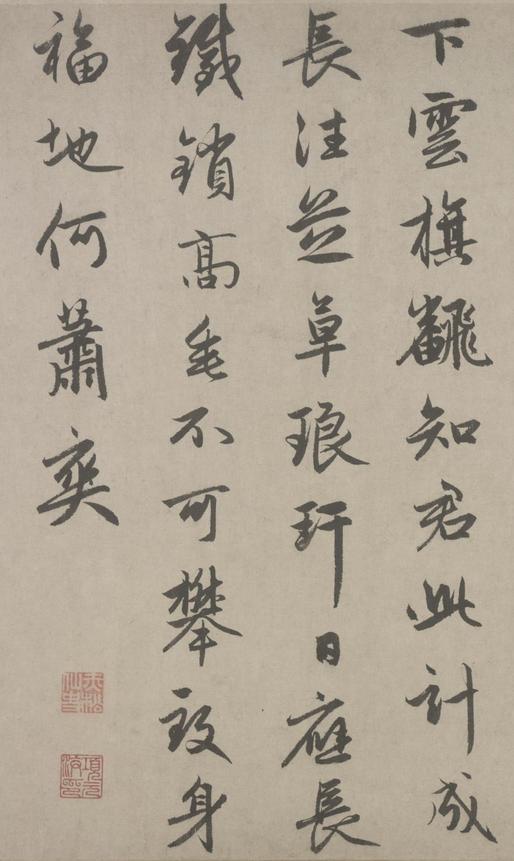 下雲旗飜知君此計成
長往芝草琅玕日應長
鐵鎖高垂不可攀致身
福地何蕭爽